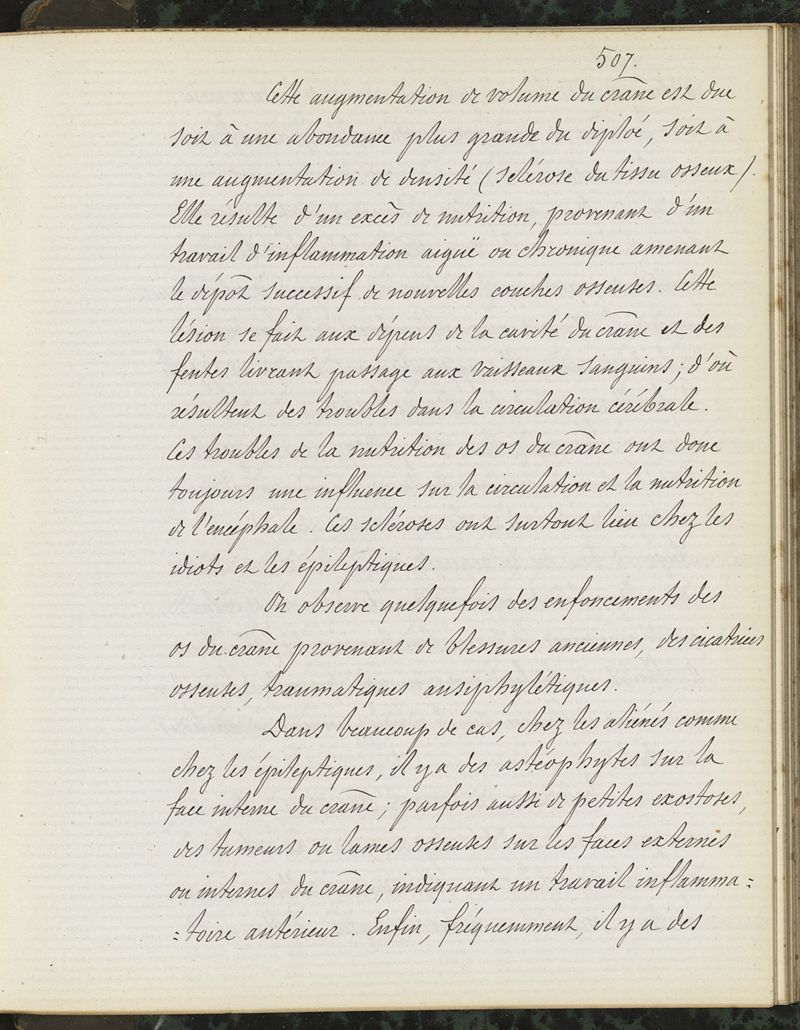 507.
Cette augmentation de volume du crâne est due
soit à une abondance plus grande du diploé, soit à
une augmentation de densité (sclérose du tissu osseux).
Elle résulte d'un excès de nutrition, provenant d'un
travail d'inflammation aiguë ou chronique amenant
le dépôt successif de nouvelles couches osseuses. Cette
lésion se fait aux dépens de la cavité du crâne et des
fentes livrant passage aux vaisseaux sanguins; d'où
résultent des troubles dans la circulation cérébrale.
Ces troubles de la nutrition des os du crâne ont donc
toujours une influence sur la circulation et la nutrition
de l'encéphale. Ces scléroses ont surtout lieu chez les
idiots et les épileptiques.
On observe quelquefois des enfoncements des
os du crâne provenant de blessures anciennes, des cicatrices
osseuses, traumatiques ou siphylétiques.
Dans beaucoup de cas, chez les aliénés comme
chez les épileptiques, il y a des astéophytes sur la
face interne du crâne; parfois aussi de petites exostoses,
des tumeurs ou lames osseuses sur les faces externes
ou internes du crâne, indiquant un travail inflamma=
=toire antérieur. Enfin, fréquemment, il y a des